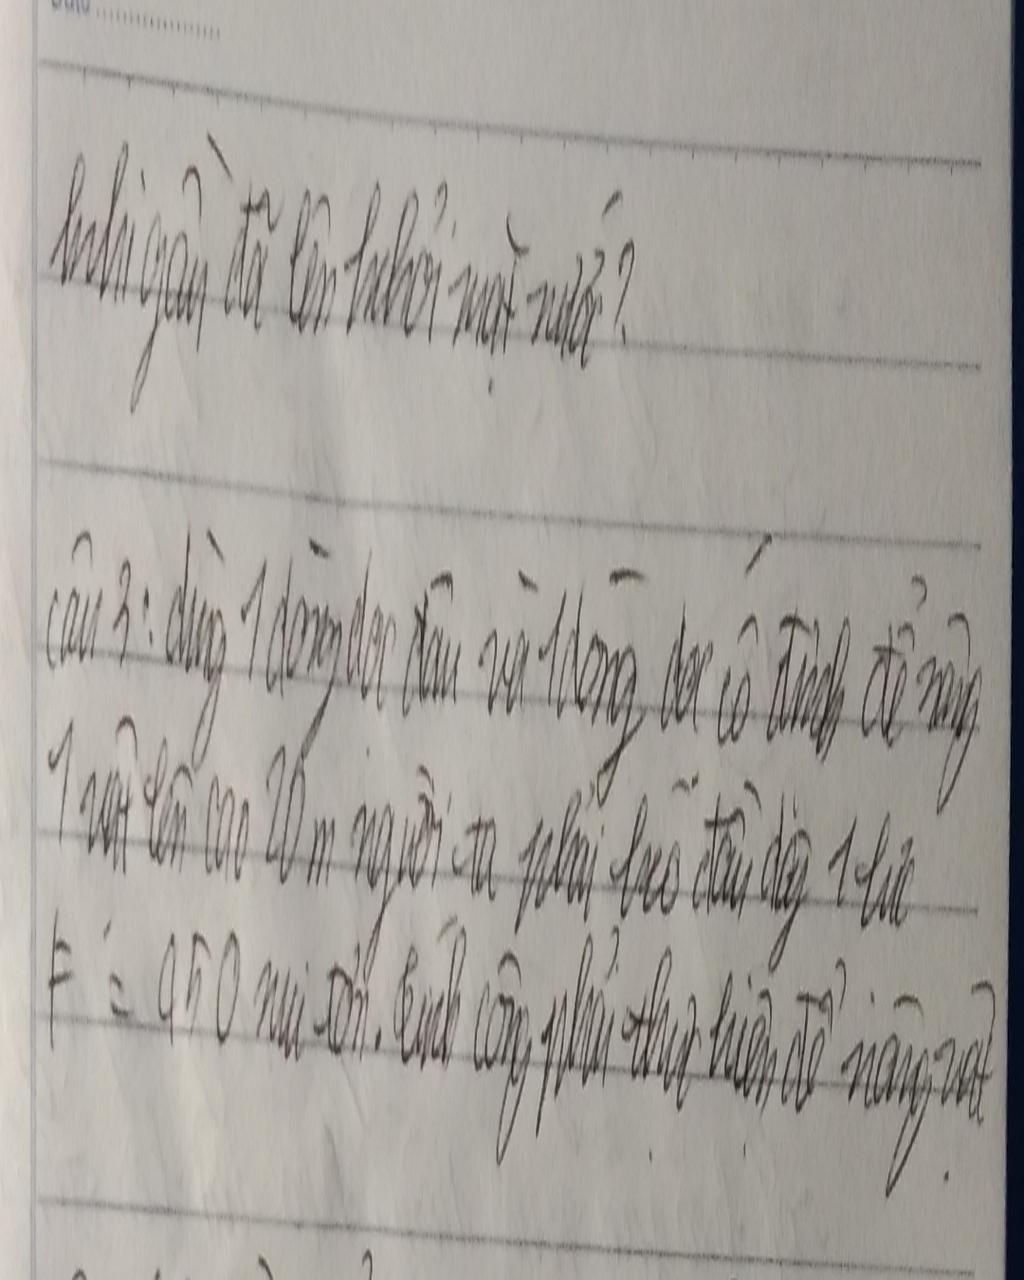 Date
khi gàu đã lên khỏi mặt nước?
câu 3: dùng 1 dòng dọc đầu và 1 dòng dọc cố định để nâng
1 vật lên cao 20 m người ta phải kéo đầu dây 1 lực
F = 450 niu tơn. tính công phải thực hiện để nâng vật